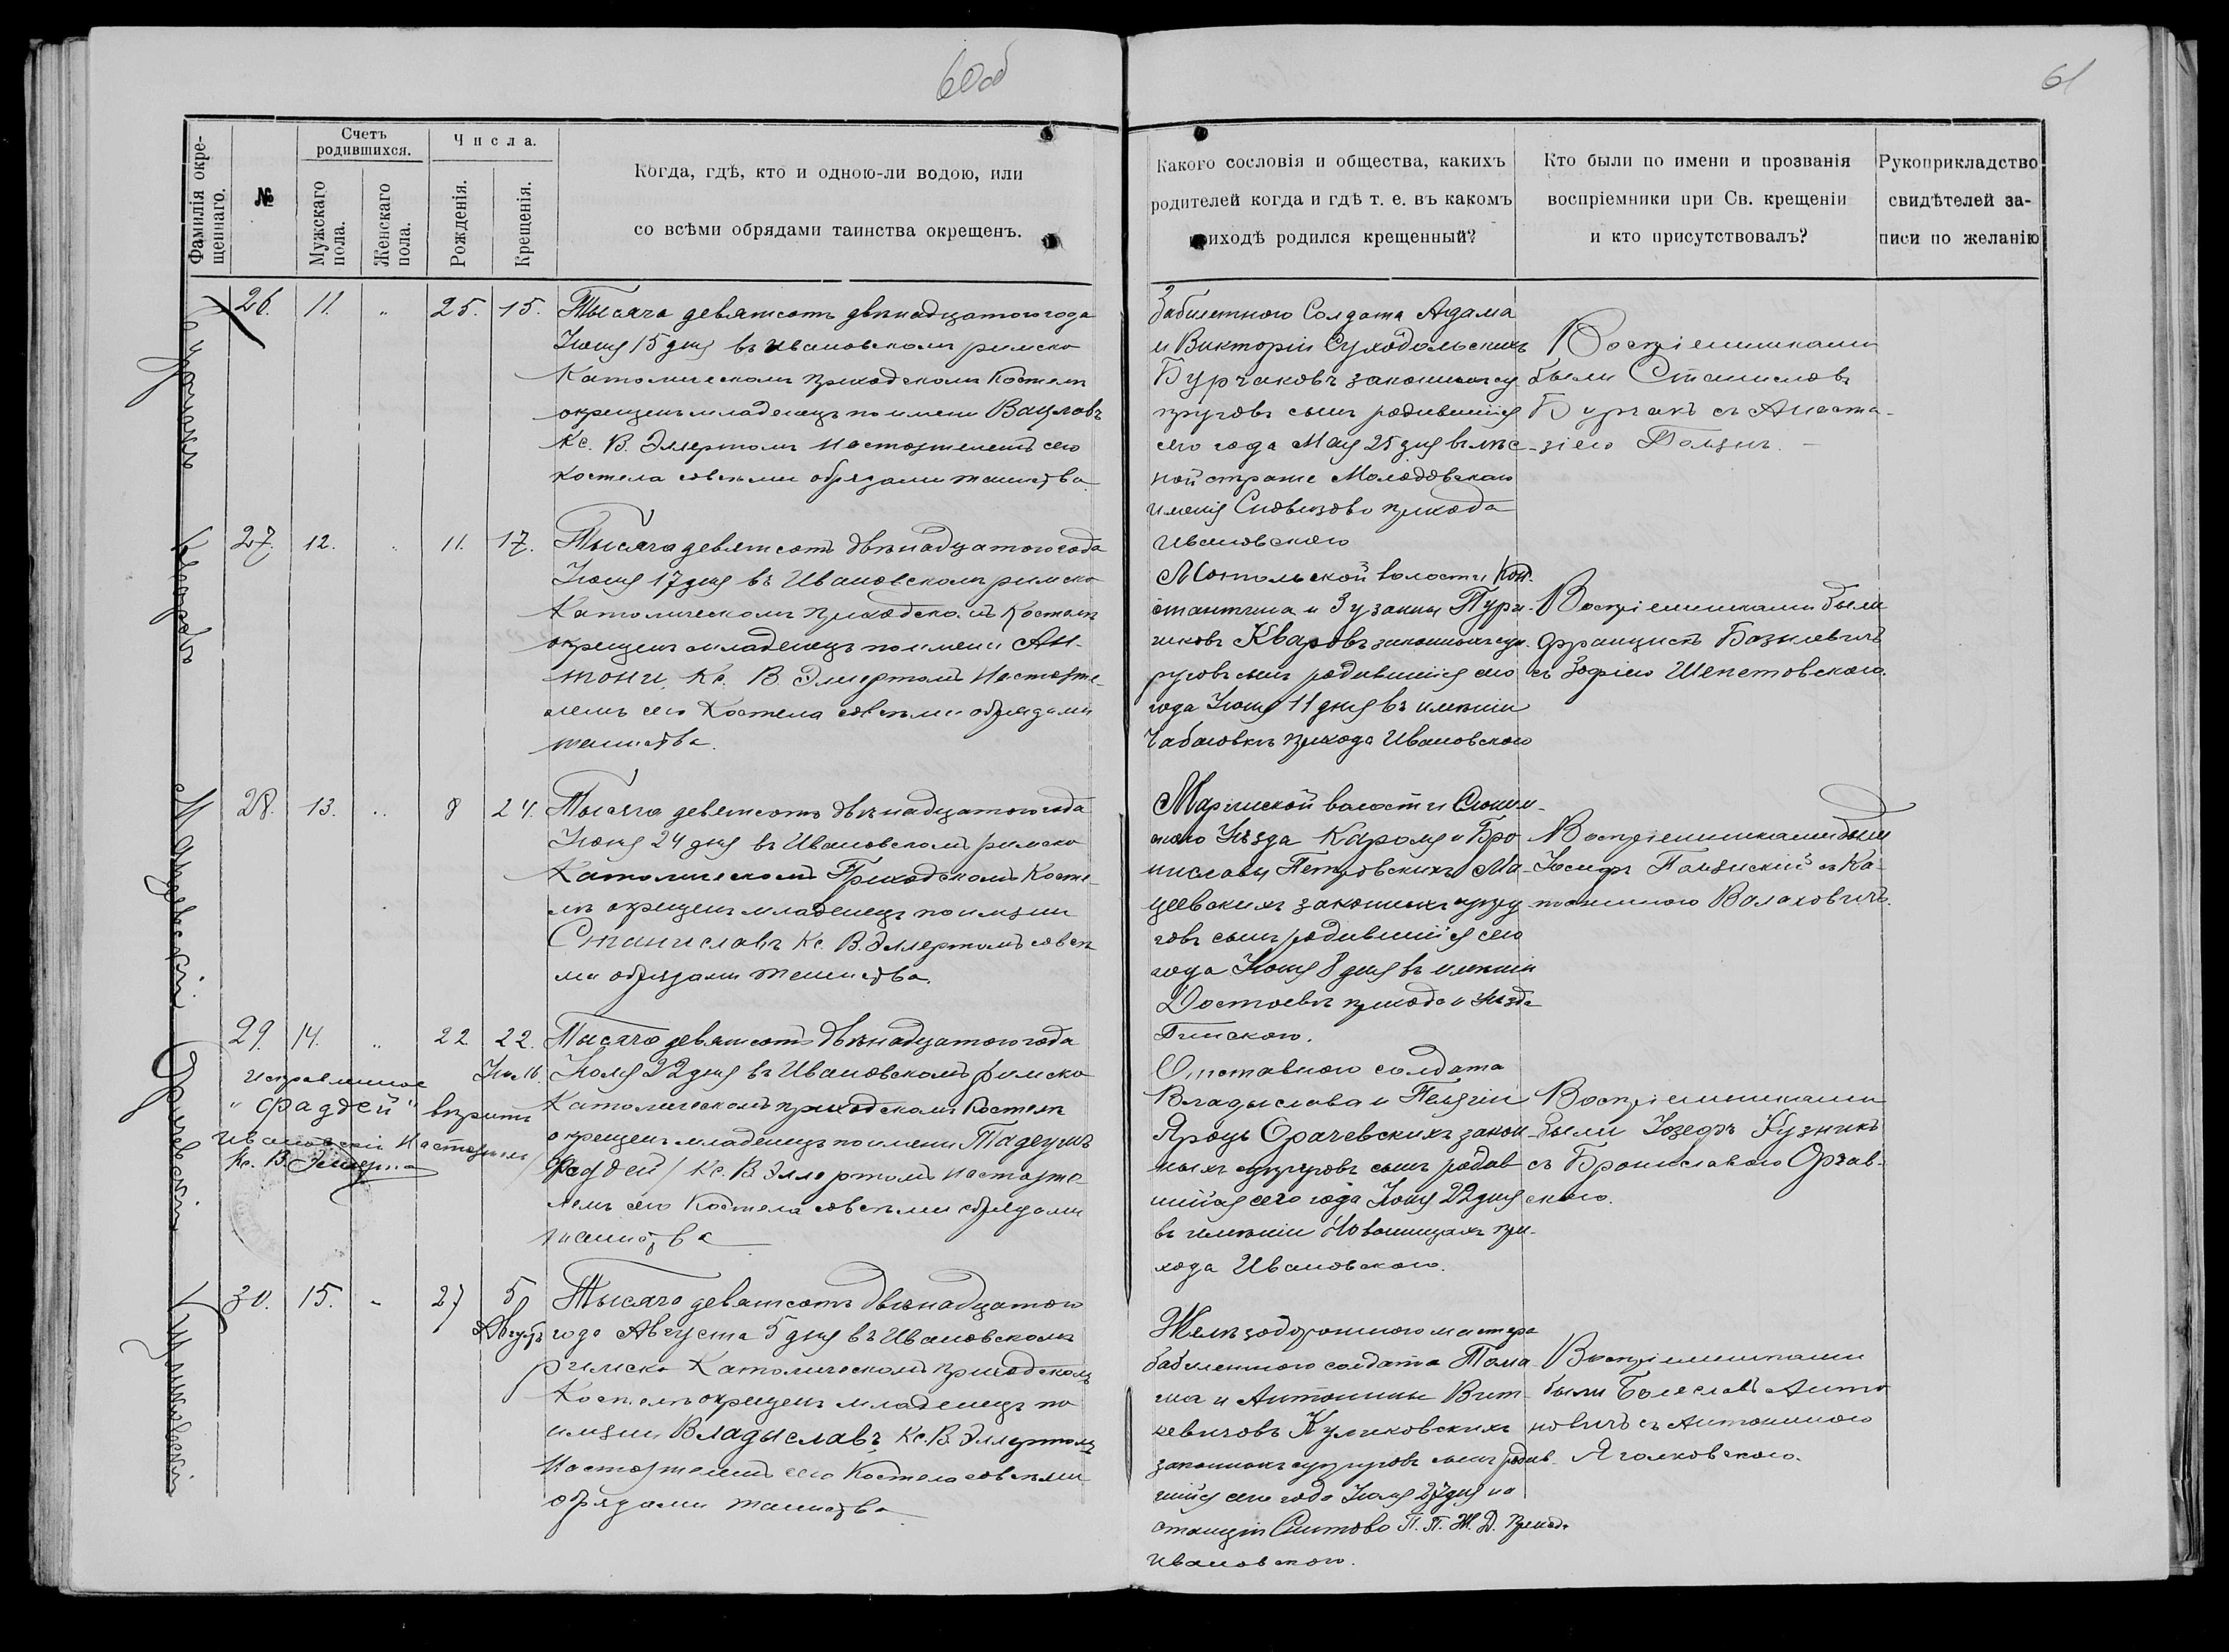 60об
61
Фамилія окре-
щеннаго.
№
Счетъ
родившихся.
Мужскаго
пола.
Женскаго
пола.
Числа.
Рожденія.
Крещенія.
Когда, гдѣ, кто и одною-ли водою, или
со всѣми обрядами таинства окрещенъ.
Какого сословія и общества, какихъ
родителей когда и гдѣ т. е. въ какомъ
приходѣ родился крещенный?
Кто были по имени и прозванія
воспріемники при Св. крещеніи
и кто присутствовалъ?
Рукоприкладство
свидѣтелей за-
писи по желанію
26. 11. " 25. 15.
Тысяча девятсотъ двѣнадцатого года
Іюня 15 дня въ Ивановскомъ римско
Католическомъ приходскомъ Костелѣ
окрещенъ младенецъ по имени Вацлавъ
Кс. В. Эллертомъ Настоятелемъ сего
костела совсѣми обрядами таинства
Забилетного Солдата Адама
и Викторіи Суходольскихъ
Бурчаковъ законныхъ су
пруговъ сынъ родившійся
сего года Мая 25 дня въ лѣс-
ной стражѣ Молодовскаго
имѣнія прихода
Ивановского
Воспріемниками
были Станиславъ
Бурчакъ съ Анаста-
зіею
Кваровъ
27. 12. " 11. 17.
Тысяча девятсотъ двѣнадцатого года
Іюня 17 дня въ Ивановскомъ римско
Католическомъ приходскомъ Костелѣ
окрещенъ младенецъ по имени Ан-
тони, Кс. В. Эллертомъ Настояте-
лемъ сего Костела совсѣми обрядами
таинства.
Мотольской волости Кон-
стантина и Зузанны
Кваровъ законныхъ суп-
руговъ сынъ родившійся сего
года Іюня 11 дня въ имѣніи
прихода Ивановского
Воспріемниками были
Францискъ Базилевичъ
съ Зофіею Шепетовского.
Мацеевскій
28. 13. " 8 24.
Тысяча девятсотъ двѣнадцатого года
Іюня 24 дня въ Ивановскомъ римско
Католическомъ Приходскомъ Косте-
лѣ окрещенъ младенецъ по имени
Станиславъ Кс. В. Эллертомъ совсѣ
ми обрядами таинства.
волости Слоним-
ского Уѣзда Кароля и Бро
ниславы Петровскихъ Ма-
цеевскихъ законныхъ супру
говъ сынъ родившійся сего
года Іюня 8 дня въ имѣніи
Достоевѣ прихода и Уѣзда
Пинского.
Воспріемниками были
Іосифъ съ Ка-
Валаховичъ.
Орачевскій
29. 14. " 22 22.
Іюль.
исправленное
"Фаддей" вѣрить
Ивановскій Настоятель
Кс. В. Эллертъ
Тысяча девятсотъ двѣнадцатого года
Іюля 22 дня въ Ивановскомъ римско
Католическомъ приходскомъ Костелѣ
окрещенъ младенецъ по имени Тадеушъ
/Фаддей/ Кс. В. Эллертомъ Настояте-
лемъ сего Костела совсѣми обрядами
таинства
Отставного солдата
Владыслава и
Яроцъ Орачевскихъ закон-
ныхъ супруговъ сынъ родив
шійся сего года Іюля 22 дня
въ имѣніи при-
хода Ивановского.
Воспріемниками
были Юзефъ Кузникъ
съ Брониславою Орчав-
ского.
Куликовскій
30. 15. " 27 5
Августъ
Тысяча девятсотъ двѣнадцатого
года Августа 5 дня въ Ивановскомъ
римско Католическомъ приходскомъ
Костелѣ окрещенъ младенецъ по
имени Владыславъ, Кс. В. Эллертомъ
Настоятелемъ сего Костела совсѣми
обрядами таинства
Желѣзодорожного мастера
забилетного солдата Тома-
ша и Антонины Вит-
кевичовъ Куликовскихъ
законныхъ супруговъ сынъ родив-
шійся сего года Іюля 27 дня на
станціи Снитово П. П. Ж. Д. Прихода
Ивановского.
Воспріемниками
были Болеславъ Анто
новичъ съ Антониною
Яголковского.